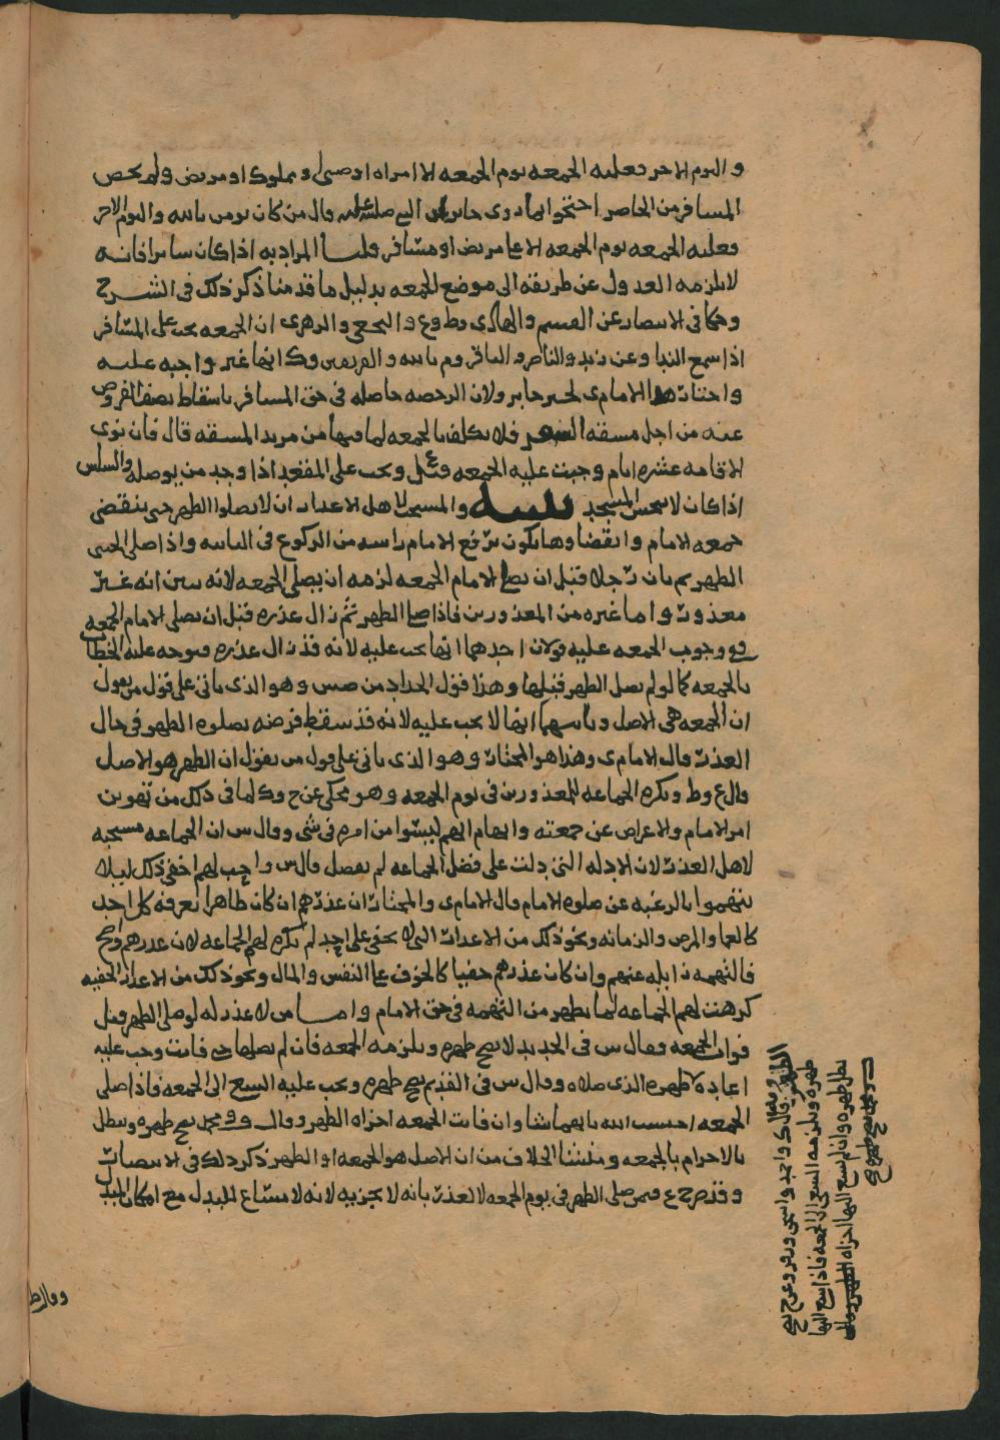 و اليوم الاخر فعليه الجمعه يوم الجمعه الا امراه او صبى او مملوك او مريض ولم يخص
المسافر من الحاضر احتجوا بما روى جابر ان النبي صلى الله عليه قال من كان يومن بالله واليوم الاخر
فعليه الجمعه يوم الجمعه الا على مريض او مسافر قلنا المراد به اذا كان سائرا فانه
لا يلزمه العدول عن طريقه الى موضع الجمعه بدليل ما قدمنا ذكر ذلك فى الشرح
وحكا فى الانتصار عن القسم والهادى وط وع و النخعى والزهرى ان الجمعه يجب على المسافر
اذا سمع الندا وعن زيد والناصر و الباقر وم بالله و الفريقين وك انها غير واجبه عليه
واختاره الامام ى لخبر جابر ولان الرخصه حاصله فى حق المسافر باسقاط نصف الفروض
عنه من اجل مشقه السفر فلا يكلف بالجمعه لما فيها من مزيد المشقه قال فان نوى
الاقامه عشره ايام وجبت عليه الجمعه ويجب على المقعد اذا وجد من يوصله والسلس
اذا كان لا ينجس المسجد تنبيه والمستحب لاهل الاعذار ان لا يصلوا الظهر حتى ينقضى
جمعه الامام و انقضاوها يكون برفع الامام راسه من الركوع فى الثانيه و اذا صلى الخنثى
الظهر ثم بان رجلا قبل ان يصلى الامام الجمعه لزمه ان يصلى الجمعه لانه تبين انه غير
معذور و اما غيره من المعذورين فاذا صلى الظهر ثم زال عذره قبل ان يصلى الامام الجمعه
ففى وجوب الجمعه عليه قولان احدهما انها يجب عليه لانه قد زال عذره فتوجه عليه الخطاب
بالجمعه كما لو لم يصل الظهر قبلها وهذا قول الحداد من صش وهو الذى ياتى على قول من يقول
ان الجمعه هى الاصل وثانيهما انها لا يجب عليه لانه قد سقط فرضه بصلوه الظهر فى حال
العذر قال الامام ى وهذا هو المختار وهو الذى ياتى على قول من يقول ان الظهر هو الاصل
قال ع وط ويكره الجماعه للمعذورين فى يوم الجمعه وهو محكى عن ح وك لما فى ذلك من تهوين
امر الامام والاعراض عن جمعته وايهام انهم ليسوا من امره فى شى وقال ش ان الجماعه مستحبه
لاهل العذر لان الادله التى دلت على فضل الجماعه لم يفصل قال ش واحب لهم اخفى ذلك ليلا
يتهموا بالرغبه عن صلوه الامام قال الامام ى والمختار ان عذرهم ان كان ظاهرا يعرفه كل احد
كالعما والمرض والزمانه ونحو ذلك من الاعذار التى لا يخفى على احد لم يكره لهم الجماعه لان عذرهم واضح
فالتهمه زايله عنهم وان كان عذرهم خفيا كالخوف على النفس والمال ونحو ذلك من الاعذار الخفيه
كرهت لهم الجماعه لما يظهر من التهمه فى حق الامام واما من لا عذر له لو صلى الظهر قبل
فوات الجمعه فقال ش فى الجديد لا يصح ظهره ويلزمه الجمعه فان لم يصلها حتى فاتت وجب عليه
اعاده ظهره الذى صلاه وقال ش فى القديم يصح ظهره ويجب عليه السعى الى الجمعه فاذا صلى
الجمعه احتسب الله بايهما شا وان فاتت الجمعه اجزاه الظهر وقال ف ومحمد يصح ظهره ويبطل
بالاحرام بالجمعه ومنشا الخلاف من ان الاصل هو الجمعه او الظهر ذكر ذلك فى الانتصار
وقد صرح ع فيمن صلى الظهر فى يوم الجمعه لا لعذر بانه لا يجزيه لانه لا مساغ للبدل مع امكان المبدل
وقال ط
ظهره ويلزمه السعى الى الجمعه فاذا سعى اليها
بطل ظهره وان لم يسع اليها اجزاه